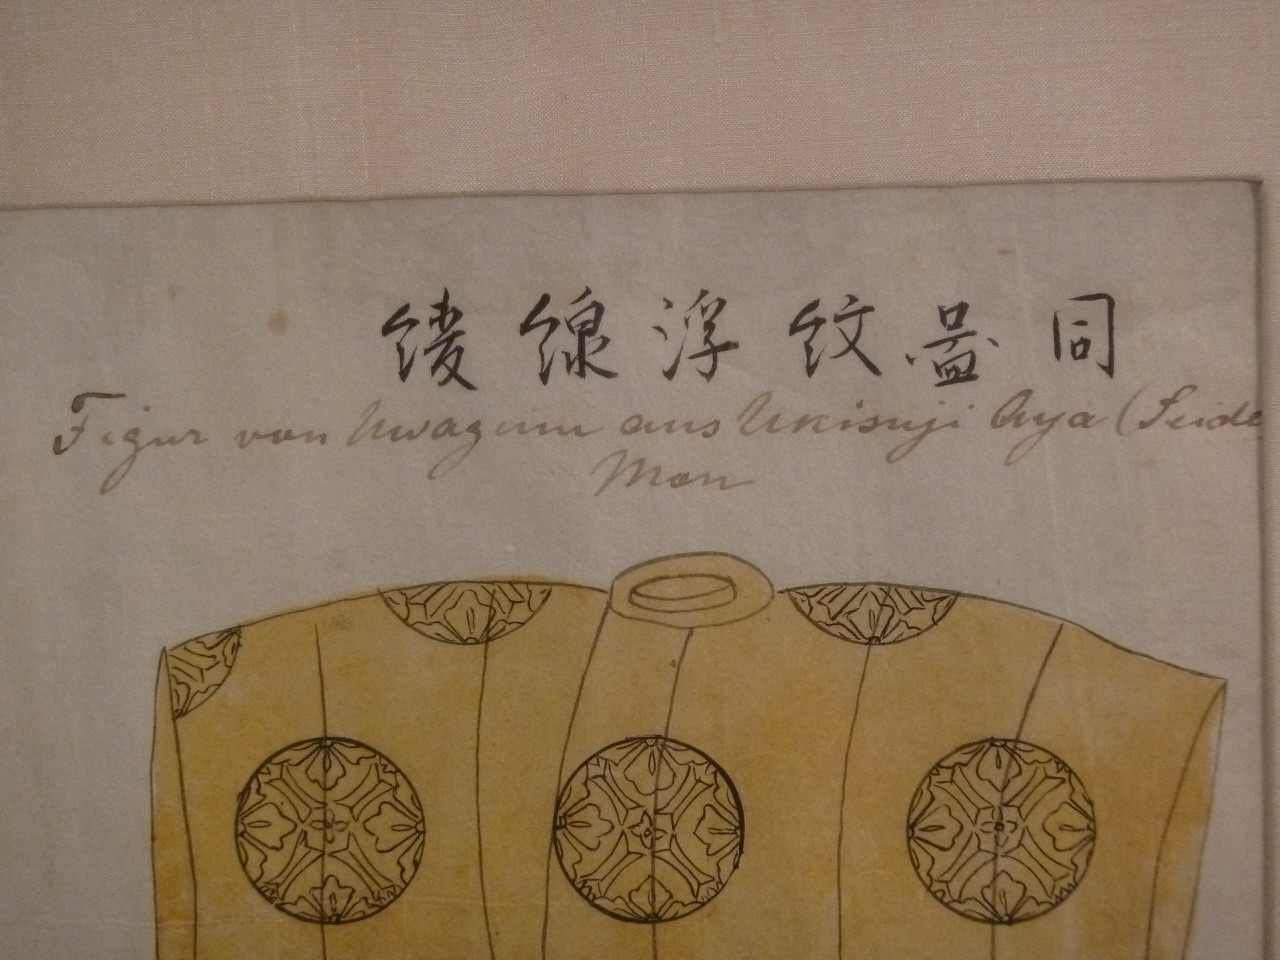 同啚紋浮線綾
Figur von aus Ukisuji Aya (Seide
Mon